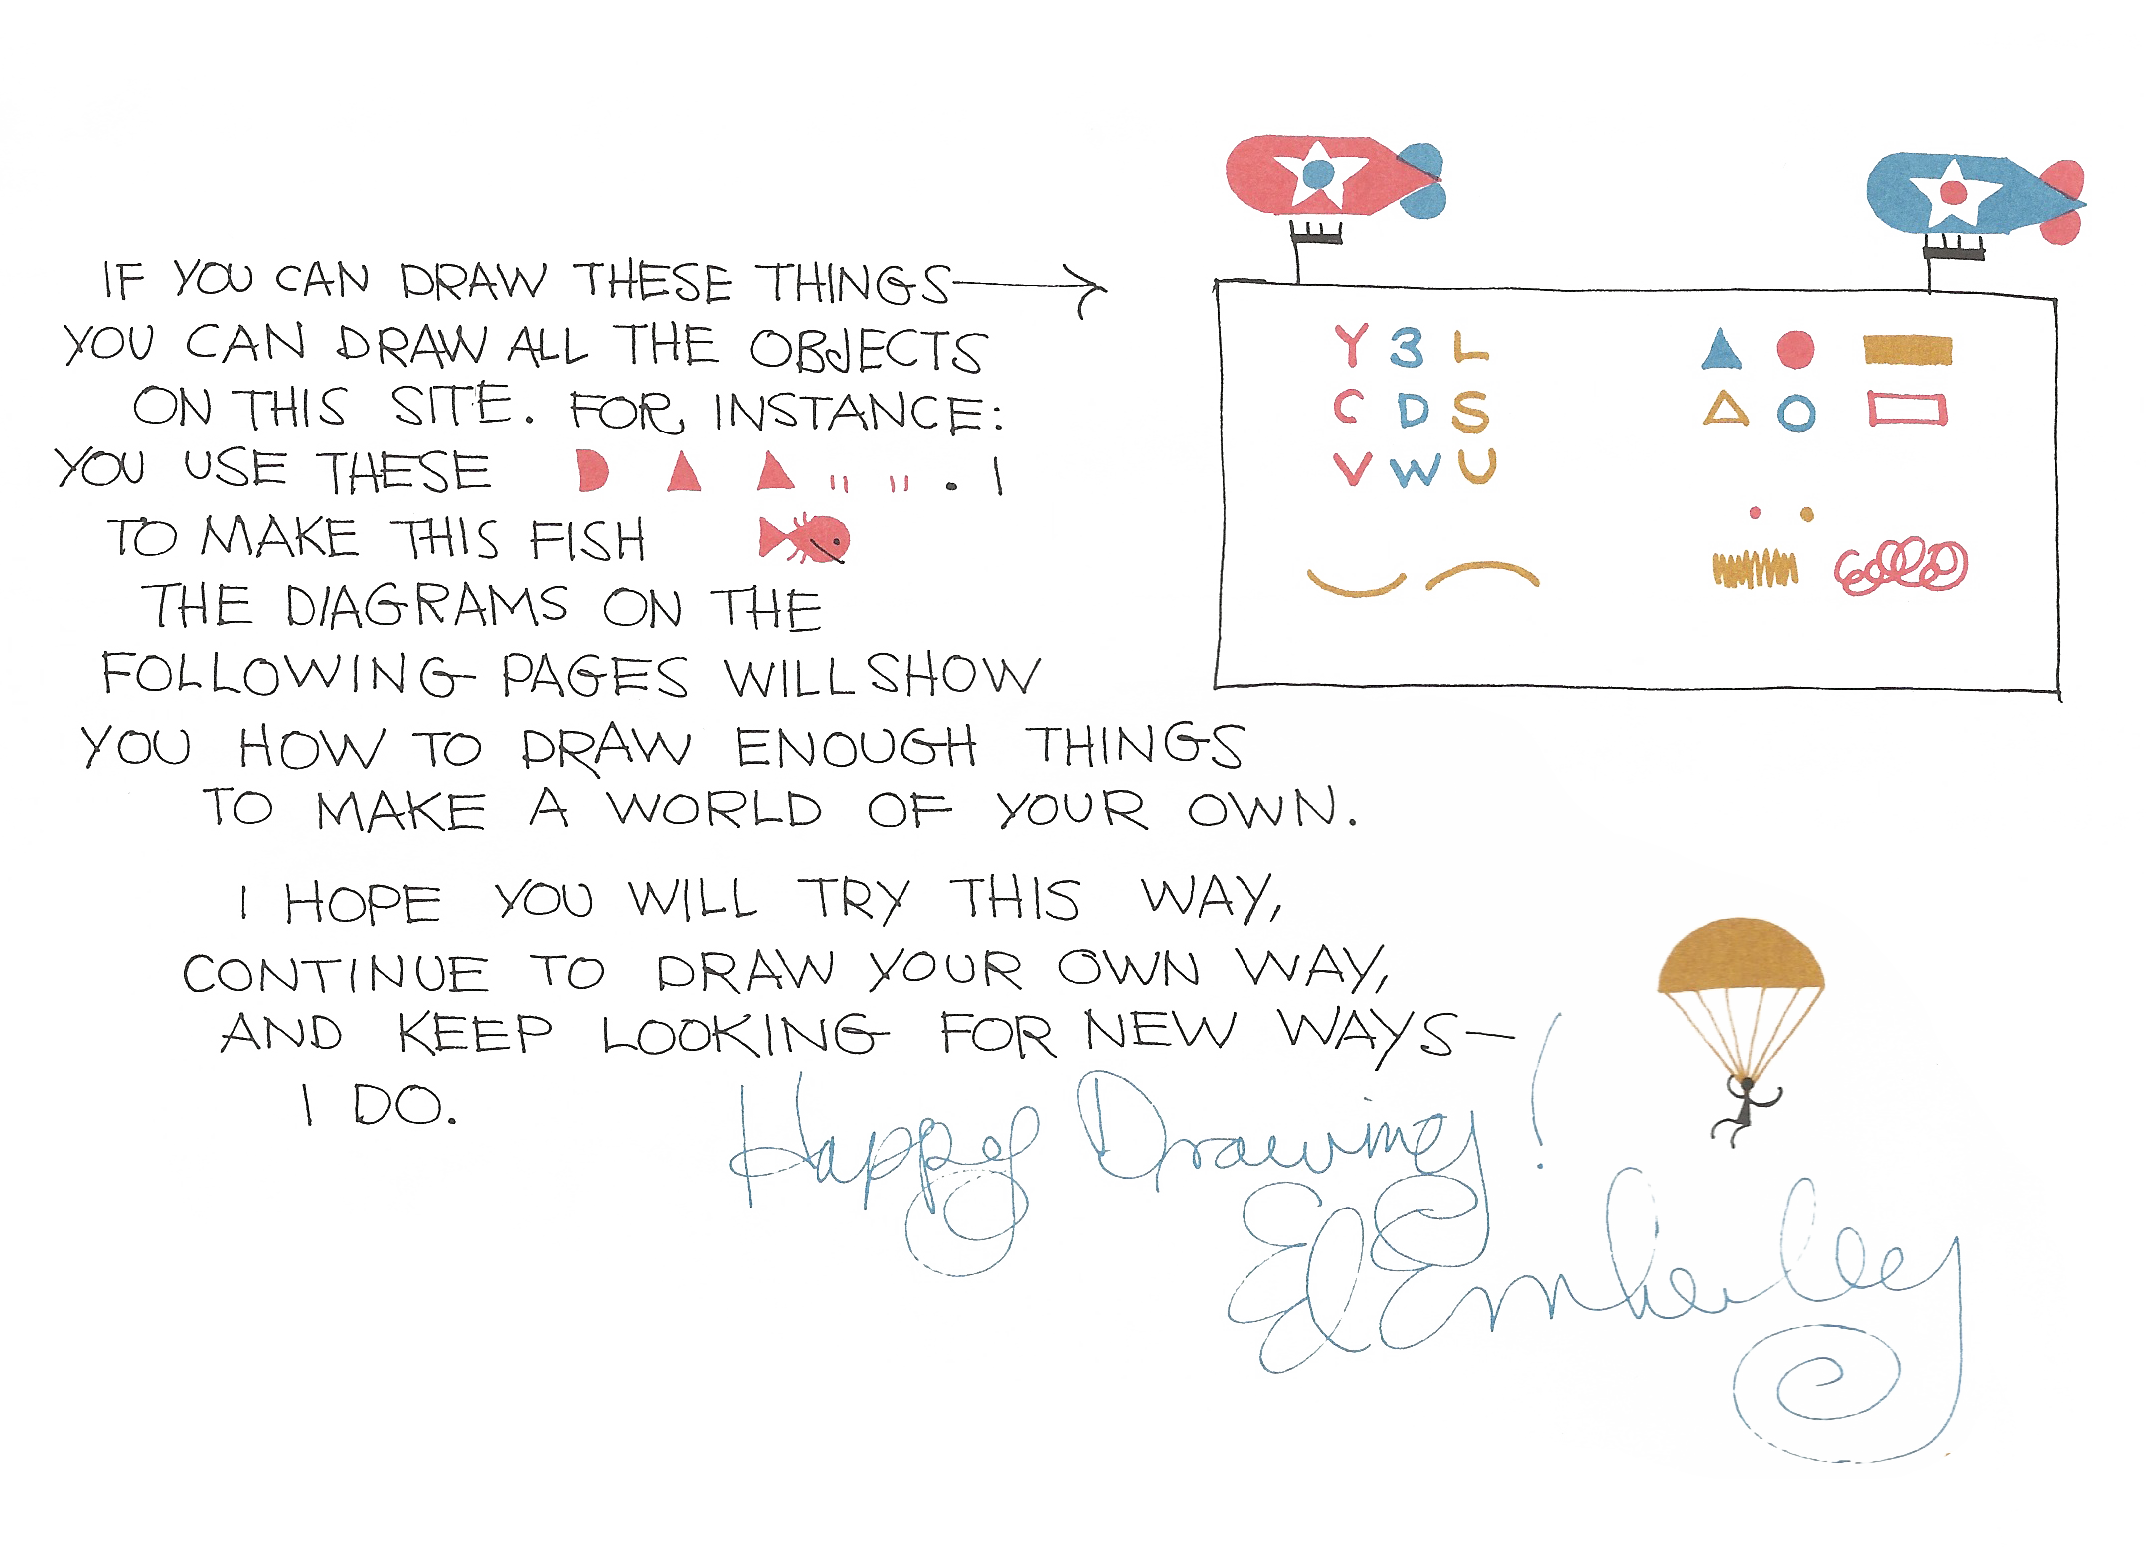 IF YOU CAN DRAW THESE THINGS
YOU CAN DRAW ALL THE OBJECTS
ON THIS SITE. FOR INSTANCE:
YOU USE THESE
TO MAKE THIS FISH
THE DIAGRAMS ON THE
FOLLOWING PAGES WILL SHOW
YOU HOW TO DRAW ENOUGH THINGS
TO MAKE A WORLD OF YOUR OWN.
I HOPE YOU WILL TRY THIS WAY,
CONTINUE TO DRAW YOUR OWN WAY,
AND KEEP LOOKING FOR NEW WAYS—
I DO.
Happy Drawing!
Ed Emberley
Y 3 L
C D S
V W U